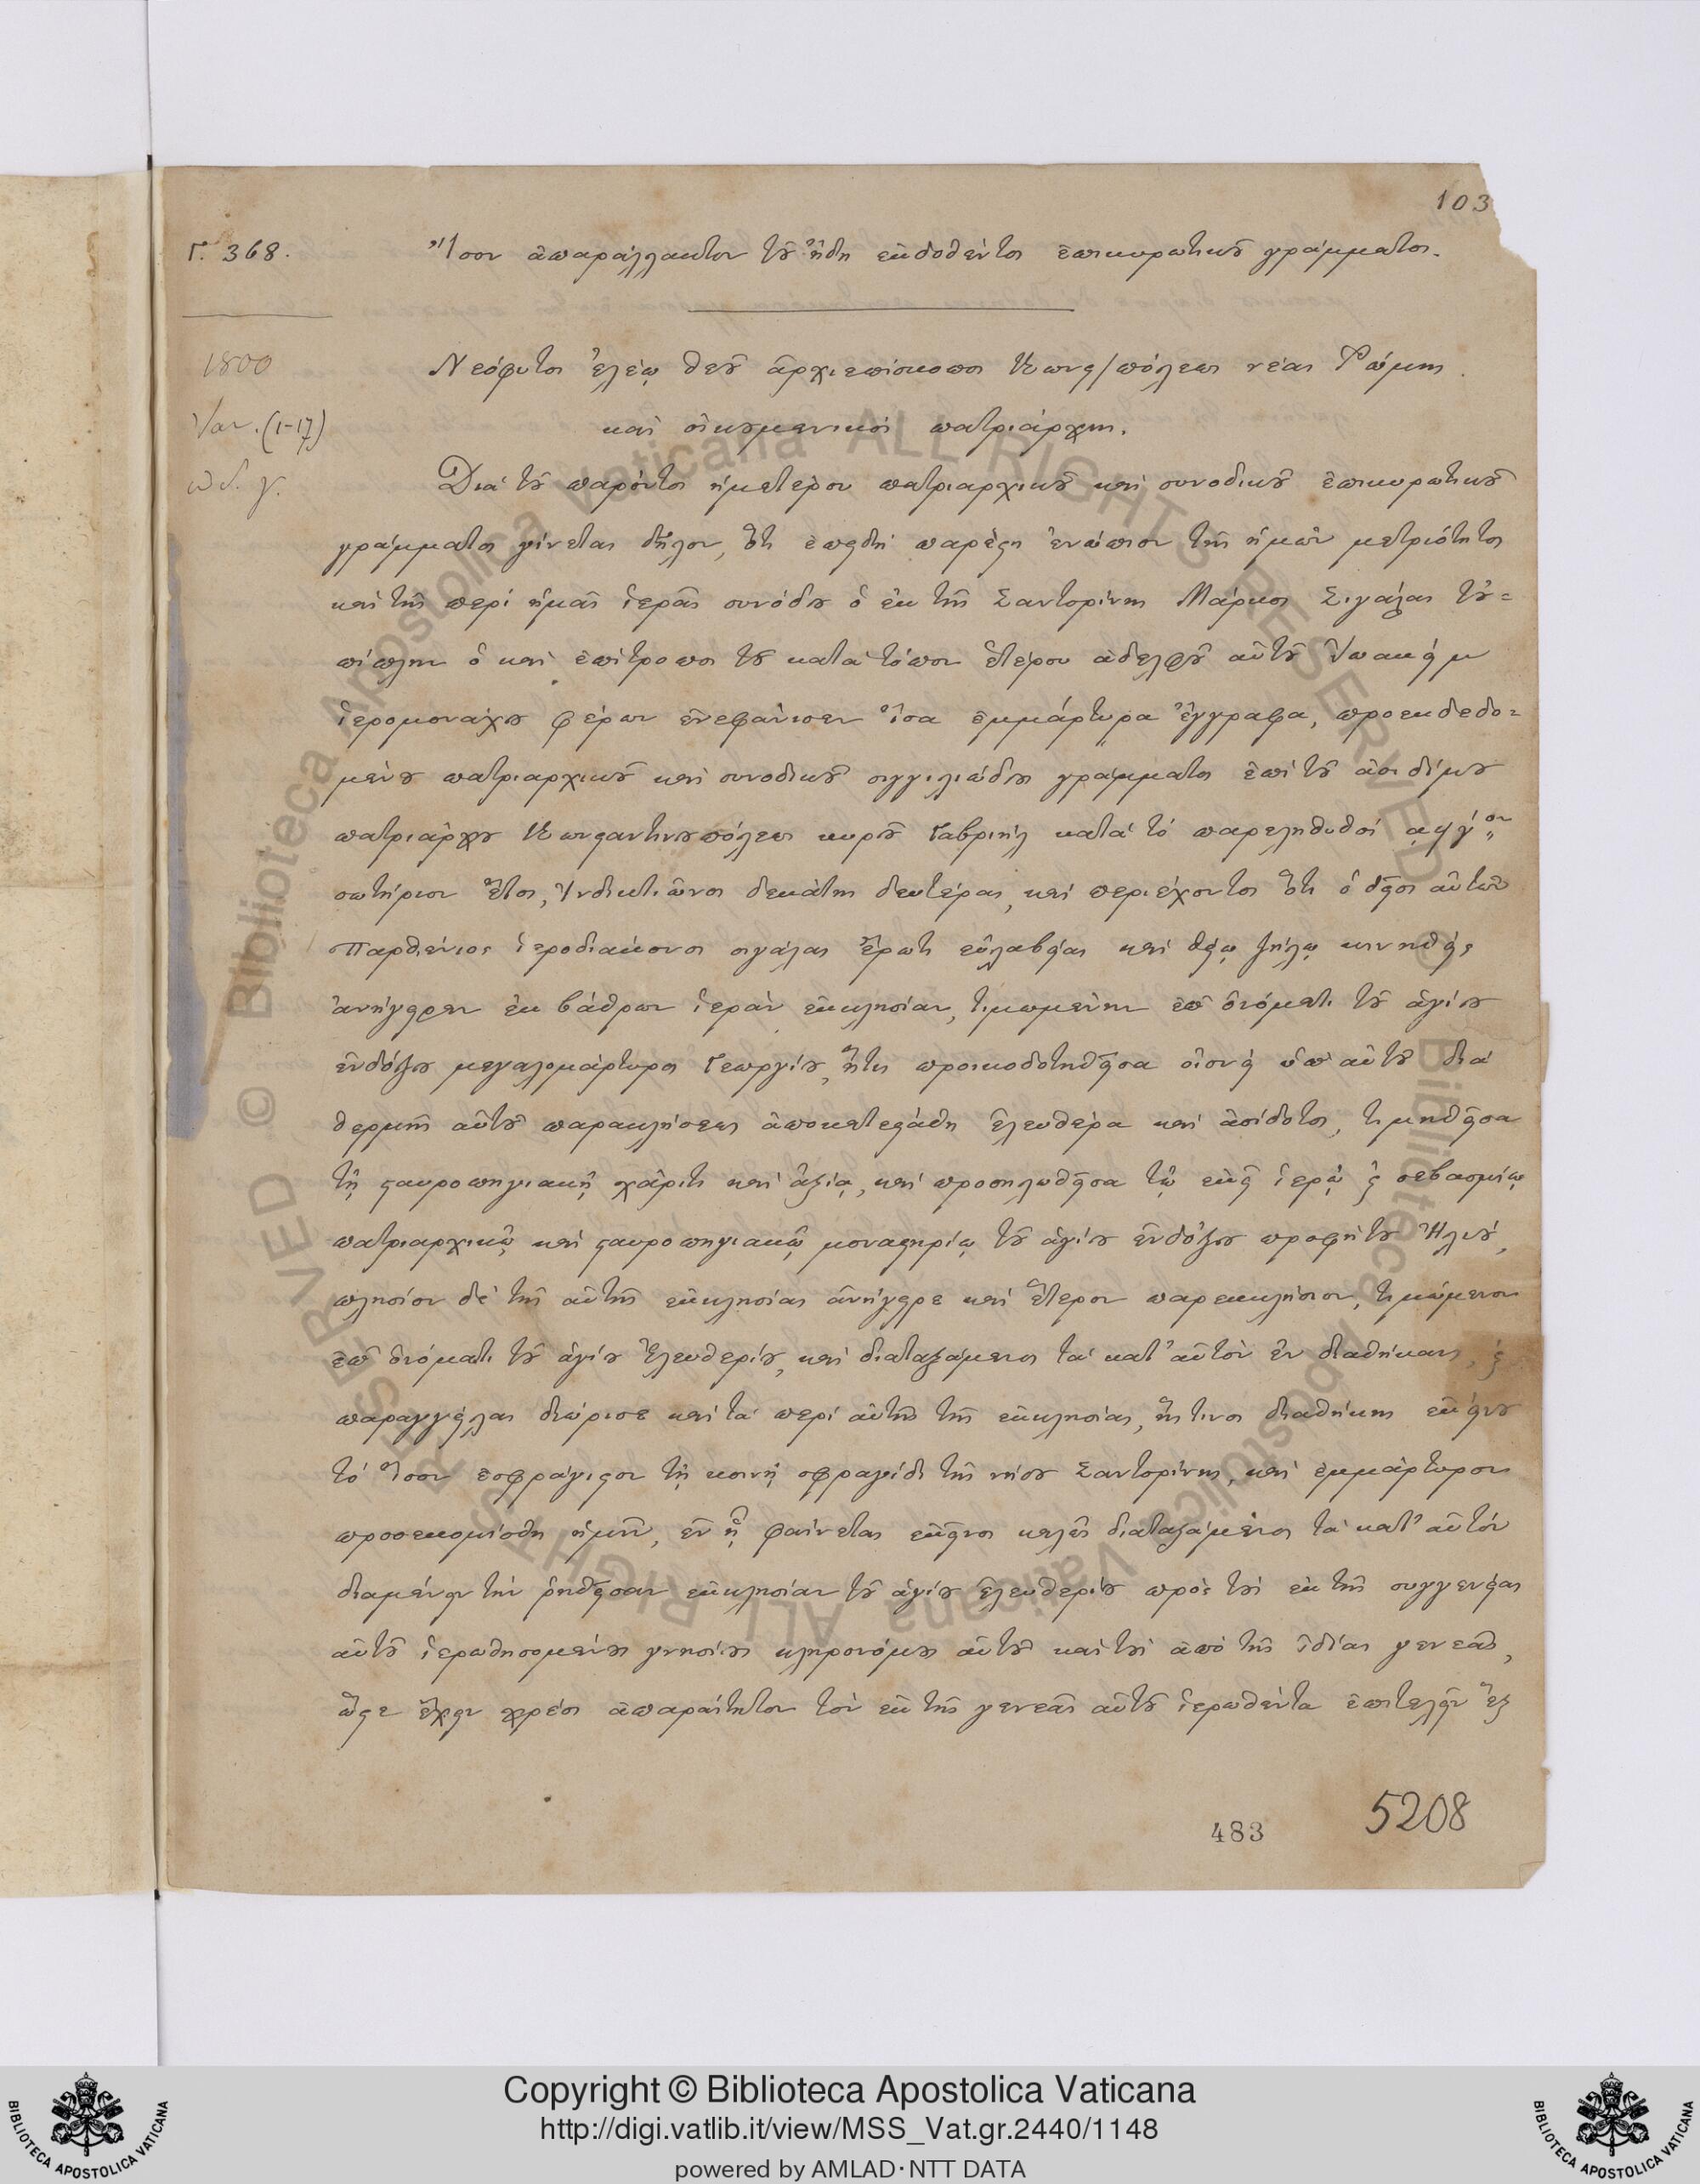 103
Γ. 368.
Ἴσον ἀπαράλλακτον τοῦ ἤδη ἐκδοθέντος ἐπικυρωτικοῦ γράμματος.
1800
Νεόφυτος ἐλέῳ θεοῦ ἀρχιεπίσκοπος Κωνς/πόλεως νέας Ῥώμης
Ἰαν. (1-17)
καὶ οἰκουμενικὸς πατριάρχης.
ἰνδ. γ.
Διὰ τοῦ παρόντος ἡμετέρου πατριαρχικοῦ καὶ συνοδικοῦ ἐπικυρωτικοῦ
γράμματος γίνεται δῆλον, ὅτι ἐπειδὴ παρέστη ἐνώπιον τῆς ἡμῶν μετριότητος
καὶ τῆς περὶ ἡμᾶς ἱερᾶς συνόδου ὁ ἐκ τῆς Σαντορίνης Μάρκος Σιγάλας τοὐ=
πίκλην ὁ καὶ ἐπίτροπος τοῦ κατὰ τόπον ἑτέρου ἀδελφοῦ αὐτοῦ Ἰωακεὶμ
ἱερομονάχου φέρων ἐνεφάνισεν ἴσα ἐμμάρτυρα ἔγγραφα, προεκδεδο=
μένου πατριαρχικοῦ καὶ συνοδικοῦ σιγγιλιώδους γράμματος ἐπὶ τοῦ ἀοιδίμου
πατριάρχου Κωνσταντινουπόλεως κυροῦ Γαβριὴλ κατὰ τὸ παρεληλυθὸς αψγ´ον
σωτήριον ἔτος, Ἰνδικτιῶνος δεκάτης δευτέρας, καὶ περιέχοντος ὅτι ὁ θεῖος αὐτῶν
Παρθένιος ἱεροδιάκονος σιγάλας ἔρωτι εὐλαβείας καὶ θείῳ ζήλῳ κινηθεὶς
ἀνήγειρεν ἐκ βάθρων ἱερὰν ἐκκλησίαν, τιμωμένην ἐπ' ὀνόματι τοῦ ἁγίου
ἐνδόξου μεγαλομάρτυρος Γεωργίου, ἥτις προικοδοτηθεῖσα οἱονεὶ ὑπ' αὐτοῦ διὰ
θερμῆς αὐτοῦ παρακλήσεως ἀποκατεστάθη ἐλευθέρα καὶ ἀσύδοτος, τιμηθεῖσα
τῇ σταυροπηγιακῇ χάριτι καὶ ἀξίᾳ, καὶ προσηλωθεῖσα τῷ ἐκεῖ ἱερῷ ϗ σεβασμίῳ
πατριαρχικῷ καὶ σταυροπηγιακῷ μοναστηρίῳ τοῦ ἁγίου ἐνδόξου προφήτου Ἠλιού,
πλησίον δὲ τῆς αὐτῆς ἐκκλησίας ἀνήγειρε καὶ ἕτερον παρεκκλήσιον, τιμώμενον
ἐπ' ὀνόματι τοῦ ἁγίου Ἐλευθερίου, καὶ διαταξάμενος τὰ κατ' αὐτὸν ἐν διαθήκαις, ϗ
παραγγείλας διώρισε καὶ τὰ περὶ αὐτῆς τῆς ἐκκλησίας, ἧς τινος διαθήκης ἐκείνου
τὸ ἴσον ἐσφράγιστον τῇ κοινῇ σφραγίδι τῆς νήσου Σαντορίνης, καὶ ἐμμάρτυρον
προσεκομίσθη ἡμῖν, ἐν ᾗ φαίνεται ἐκεῖνος καλῶς διαταξάμενος τὰ κατ' αὐτὸν
διαμένειν τὴν ῥηθεῖσαν ἐκκλησίαν τοῦ ἁγίου ἐλευθερίου πρὸς τοὺς ἐκ τῆς συγγενείας
αὐτοῦ ἱερωθησομένους γνησίους κληρονόμους αὐτοῦ καὶ τοὺς ἀπὸ τῆς ἰδίας γενεᾶς,
ὥστε ἔχειν χρέος ἀπαραίτητον τὸν ἐκ τῆς γενεᾶς αὐτοῦ ἱερωθέντα ἐπιτελεῖν ἐξ
483
5208
© Biblioteca Apostolica Vaticana ALL RIGHTS RESERVED © Biblioteca Apostolica Vaticana ALL RIGHTS RESERVED
Copyright © Biblioteca Apostolica Vaticana
http://digi.vatlib.it/view/MSS_Vat.gr.2440/1148
powered by AMLAD·NTT DATA
BIBLIOTECA APOSTOLICA VATICANA
BIBLIOTECA APOSTOLICA VATICANA